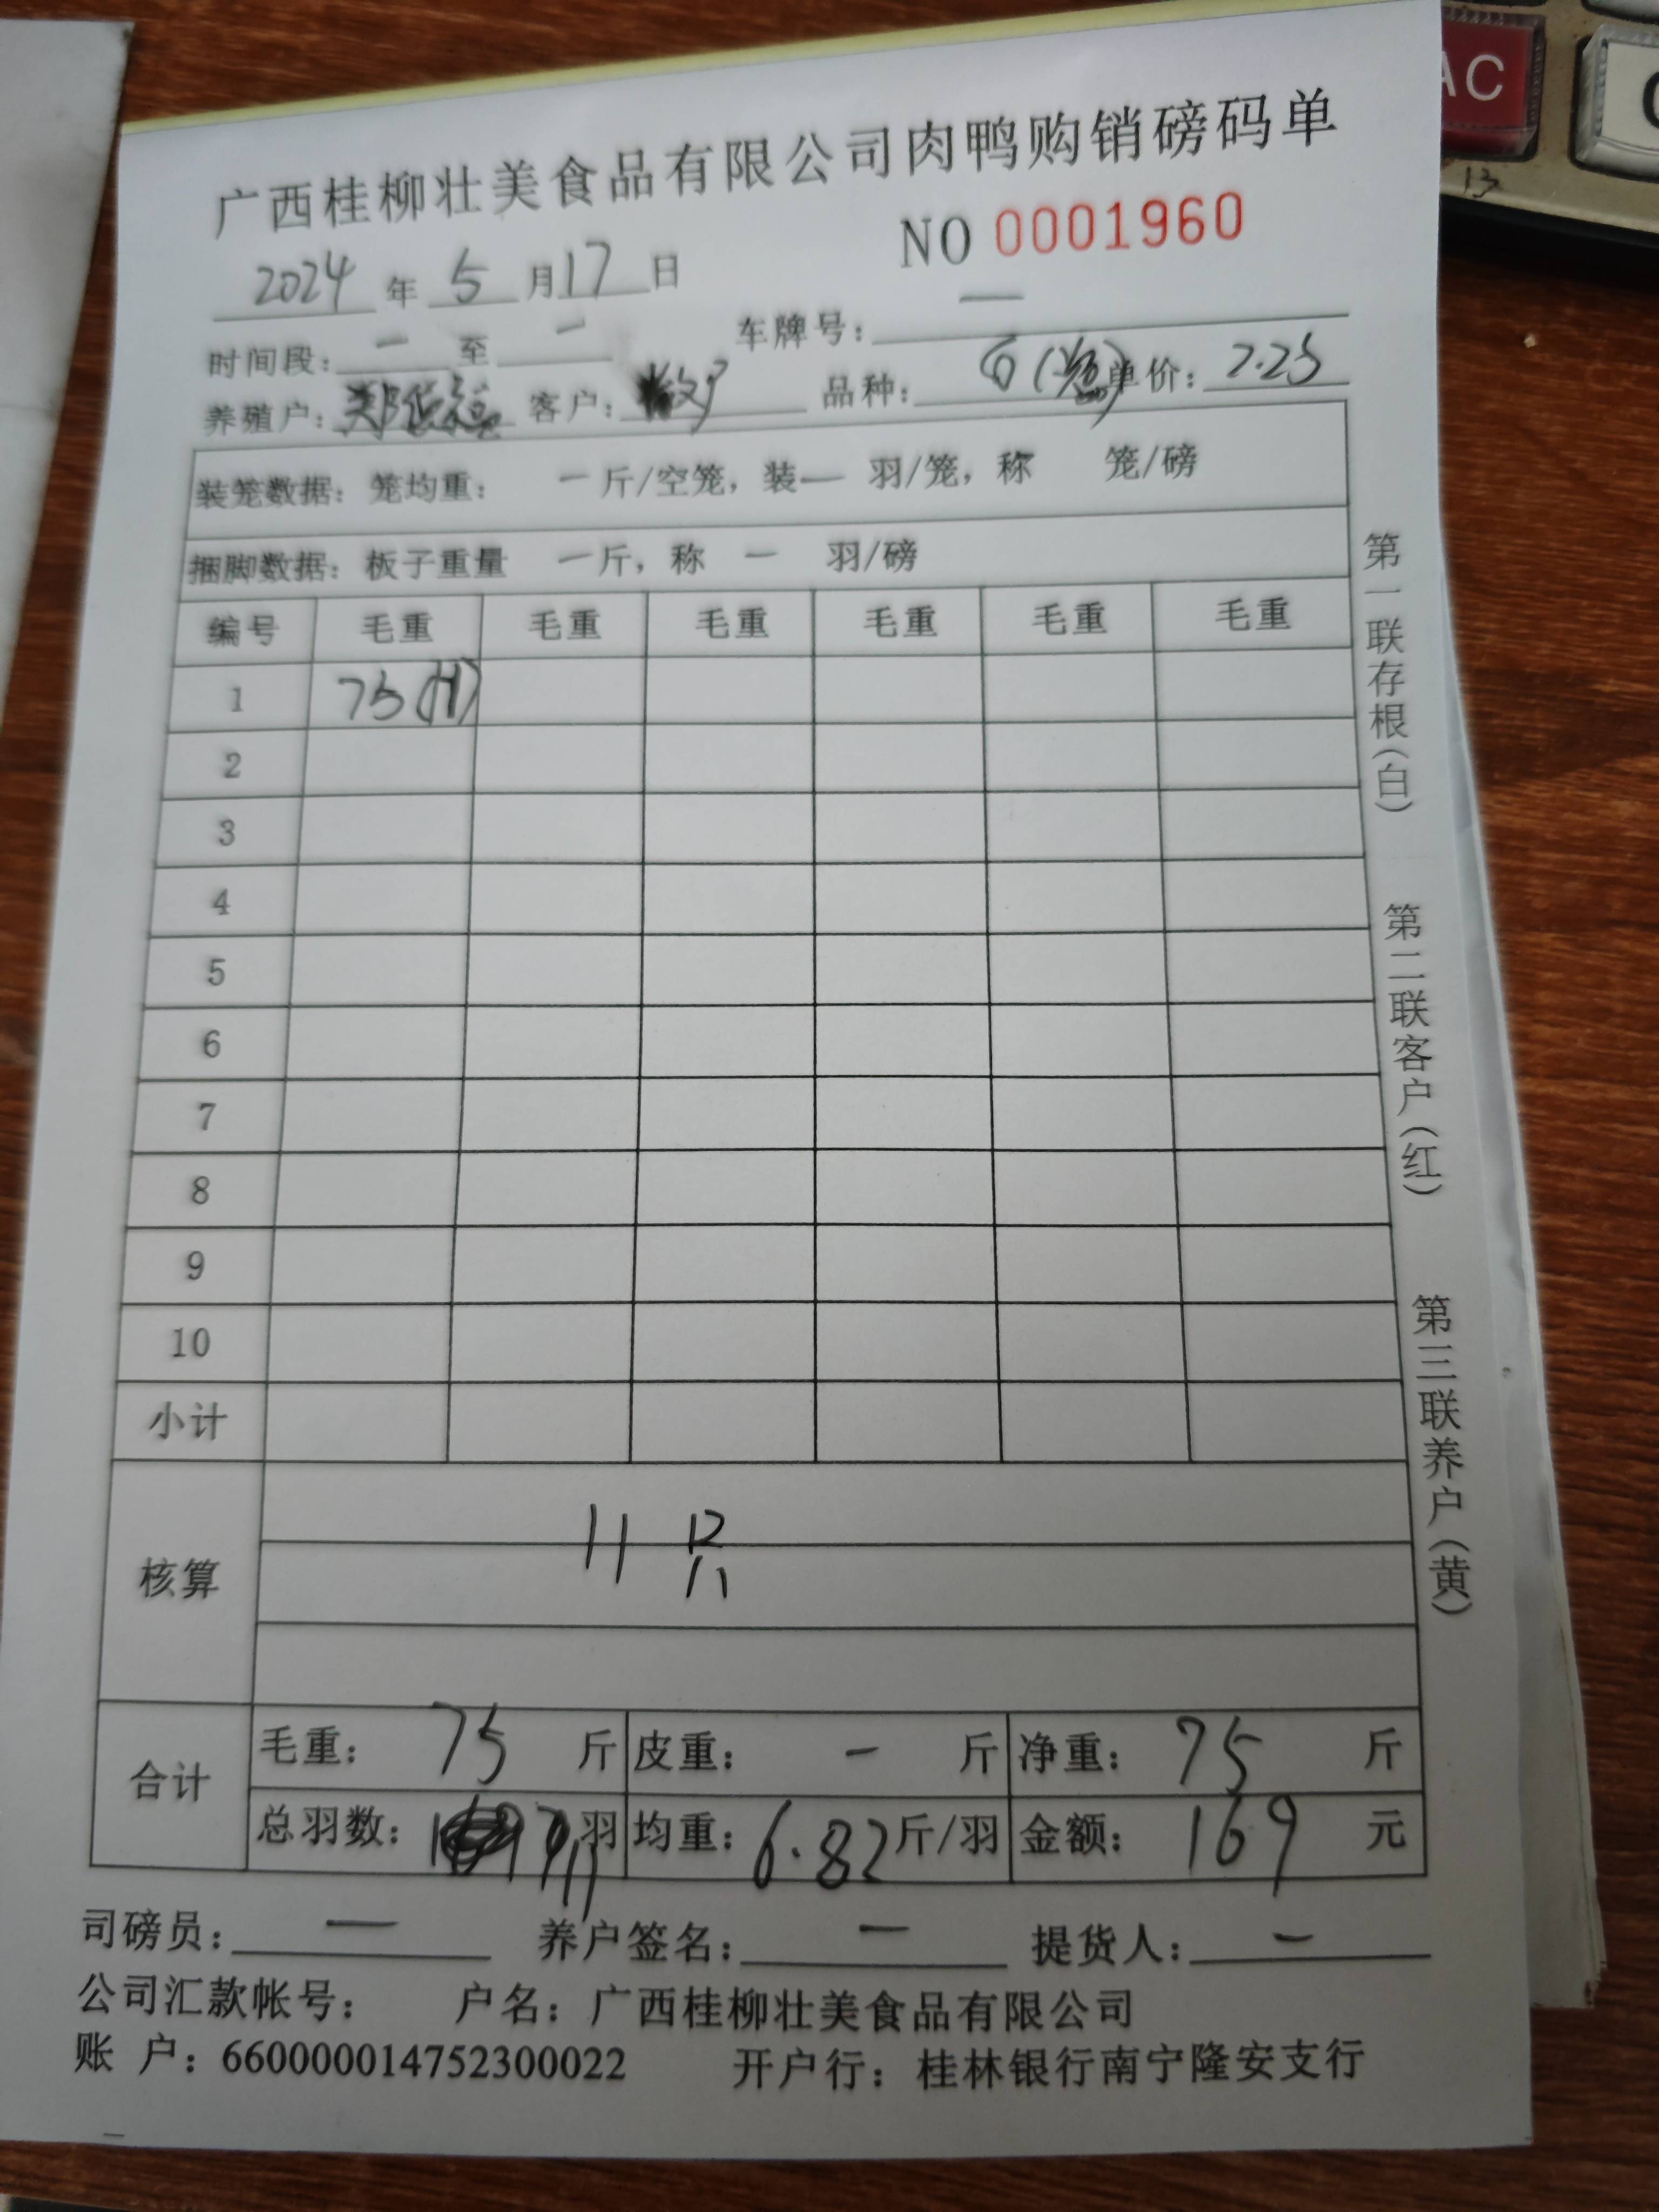 广西桂柳壮美食品有限公司肉鸭购销磅码单
NO 0001960
2024 年 5 月 17 日
时间段: 一 至 一 车牌号: 一
养殖户: 客户: 散户 品种: 单价: 2.25
装笼数据: 笼均重: 一 斤/空笼, 装一 羽/笼, 称 笼/磅
捆脚数据: 板子重量 一 斤, 称 一 羽/磅
编号 毛重 毛重 毛重 毛重 毛重 毛重
1 75(11)
2
3
4
5
6
7
8
9
10
小计
核算 11只
合计 毛重: 75 斤 皮重: 一 斤 净重: 75 斤
总羽数: 11 羽 均重: 6.82 斤/羽 金额: 169 元
司磅员: 一 养户签名: 一 提货人: 一
公司汇款帐号: 户名: 广西桂柳壮美食品有限公司
账 户: 660000014752300022 开户行: 桂林银行南宁隆安支行
第一联存根(白)
第二联客户(红)
第三联养户(黄)
AC
13